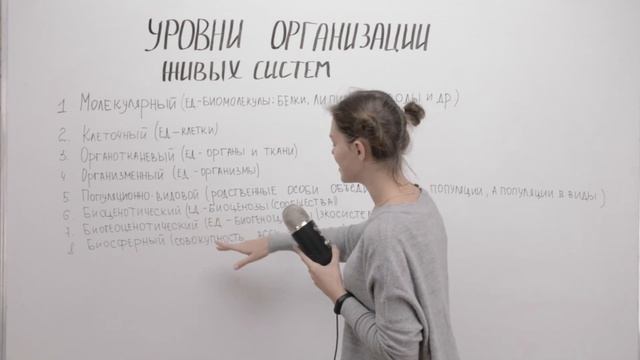 УРОВНИ ОРГАНИЗАЦИИ
ЖИВЫХ СИСТЕМ
1 МОЛЕКУЛЯРНЫЙ (ЕД-БИОМОЛЕКУЛЫ: БЕЛКИ, И ДР.)
2. КЛЕТОЧНЫЙ (ЕД-КЛЕТКИ)
3. ОРГАНОТКАНЕВЫЙ (ЕД - ОРГАНЫ И ТКАНИ)
4. ОРГАНИЗМЕННЫЙ (ЕД -ОРГАНИЗМЫ)
5 ПОПУЛЯЦИОННО-ВИДОВОЙ (РОДСТВЕННЫЕ ОСОБИ ПОПУЛЯЦИИ, А ПОПУЛЯЦИИ В ВИДЫ)
6. БИОЦЕНОТИЧЕСКИЙ (ЕД -БИОЦЕНОЗЫ (СООБЩЕСТВА))
7. БИОГЕОЦЕНОТИЧЕСКИЙ (ЕД -
8 БИОСФЕРНЫЙ (СОВОКУПНОСТЬ